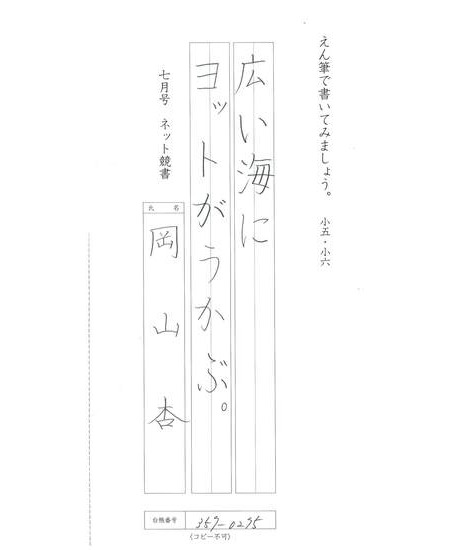 えん筆で書いてみましょう。 小五・小六
広い海に
ヨットがうかぶ。
七月号 ネット競書
氏 名
岡山杏
台帳番号 359-0295
(コピー不可)